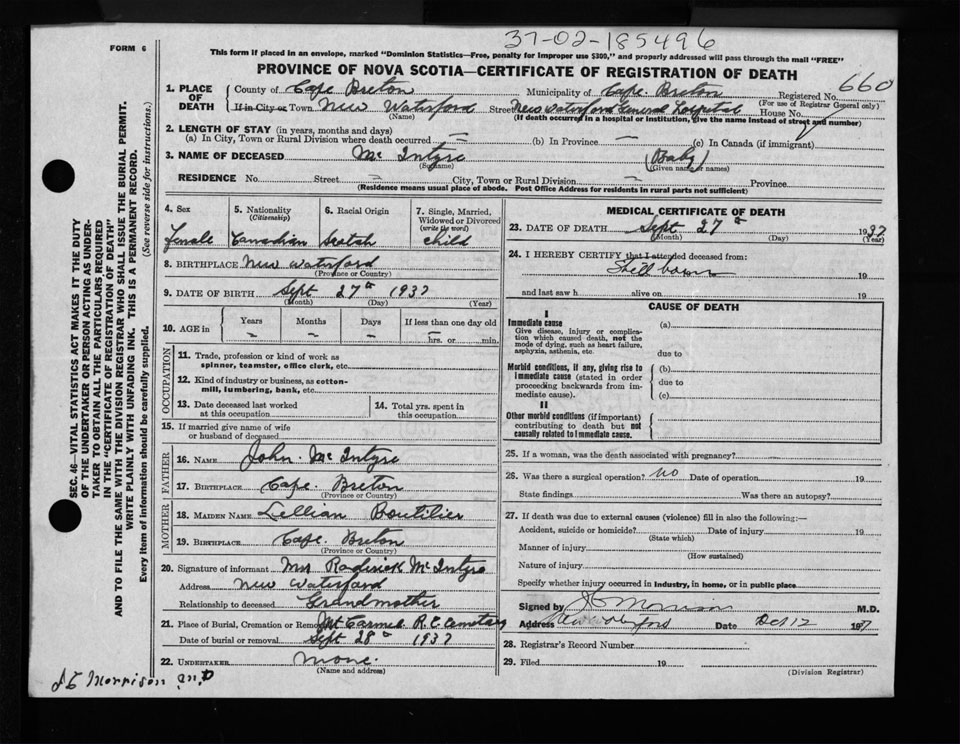 37-02-185496
FORM 6
This form if placed in an envelope, marked "Dominion Statistics—Free, penalty for improper use $300," and properly addressed will pass through the mail "FREE"
PROVINCE OF NOVA SCOTIA—CERTIFICATE OF REGISTRATION OF DEATH
1. PLACE OF DEATH County of Cape Breton Municipality of Cape Breton Registered No. 660
(For use of Registrar General only)
If in City or Town New Waterford Street New Waterford General Hospital House No.
(Name) (If death occurred in a hospital or institution, give the name instead of street and number)
2. LENGTH OF STAY (in years, months and days)
(a) In City, Town or Rural Division where death occurred — (b) In Province — (c) In Canada (if immigrant)
3. NAME OF DECEASED Mc Intyre (Baby)
(Surname) (Given name or names)
RESIDENCE No. Street — City, Town or Rural Division — Province
(Residence means usual place of abode. Post Office Address for residents in rural parts not sufficient)
SEC. 46—VITAL STATISTICS ACT MAKES IT THE DUTY
OF THE UNDERTAKER OR PERSON ACTING AS UNDER-
TAKER TO OBTAIN ALL THE PARTICULARS REQUIRED
IN THE "CERTIFICATE OF REGISTRATION OF DEATH"
AND TO FILE THE SAME WITH THE DIVISION REGISTRAR WHO SHALL ISSUE THE BURIAL PERMIT.
WRITE PLAINLY WITH UNFADING INK. THIS IS A PERMANENT RECORD.
Every item of information should be carefully supplied. (See reverse side for instructions.)
4. Sex 5. Nationality (Citizenship) 6. Racial Origin 7. Single, Married, Widowed or Divorced (write the word)
Female Canadian Scotch Child
8. BIRTHPLACE New Waterford
(Province or Country)
9. DATE OF BIRTH Sept 27th 1937
(Month) (Day) (Year)
10. AGE in Years Months Days If less than one day old
— — — — hrs. or min.
OCCUPATION
11. Trade, profession or kind of work as
spinner, teamster, office clerk, etc.
12. Kind of industry or business, as cotton-
mill, lumbering, bank, etc.
13. Date deceased last worked at this occupation 14. Total yrs. spent in this occupation
15. If married give name of wife
or husband of deceased
FATHER
16. NAME John Mc Intyre
17. BIRTHPLACE Cape Breton
(Province or Country)
MOTHER
18. MAIDEN NAME Lillian Boutilier
19. BIRTHPLACE Cape Breton
(Province or Country)
20. Signature of informant Mrs Roderick Mc Intyre
Address New Waterford
Relationship to deceased Grandmother
21. Place of Burial, Cremation or Removal Mt Carmel R.C. Cemetery
Date of burial or removal Sept 28th 1937
22. UNDERTAKER None.
(Name and address)
MEDICAL CERTIFICATE OF DEATH
23. DATE OF DEATH Sept 27th 1937
(Month) (Day) (Year)
24. I HEREBY CERTIFY that I attended deceased from:
Still born 19
and last saw h alive on 19
CAUSE OF DEATH
I
Immediate cause (a)
Give disease, injury or complica-
tion which caused death, not the
mode of dying, such as heart failure,
asphyxia, asthenia, etc. due to
Morbid conditions, if any, giving rise to (b)
immediate cause (stated in order due to
proceeding backwards from im-
mediate cause). (c)
II
Other morbid conditions (if important)
contributing to death but not
causally related to immediate cause.
25. If a woman, was the death associated with pregnancy?
26. Was there a surgical operation? No Date of operation 19
State findings Was there an autopsy?
27. If death was due to external causes (violence) fill in also the following:—
Accident, suicide or homicide? Date of injury 19
(State which)
Manner of injury
(How sustained)
Nature of injury
Specify whether injury occurred in industry, in home, or in public place
Signed by J E Morrison M.D.
Address New Waterford Date Oct 12 1937
28. Registrar's Record Number
29. Filed 19
(Division Registrar)
J E Morrison M.D